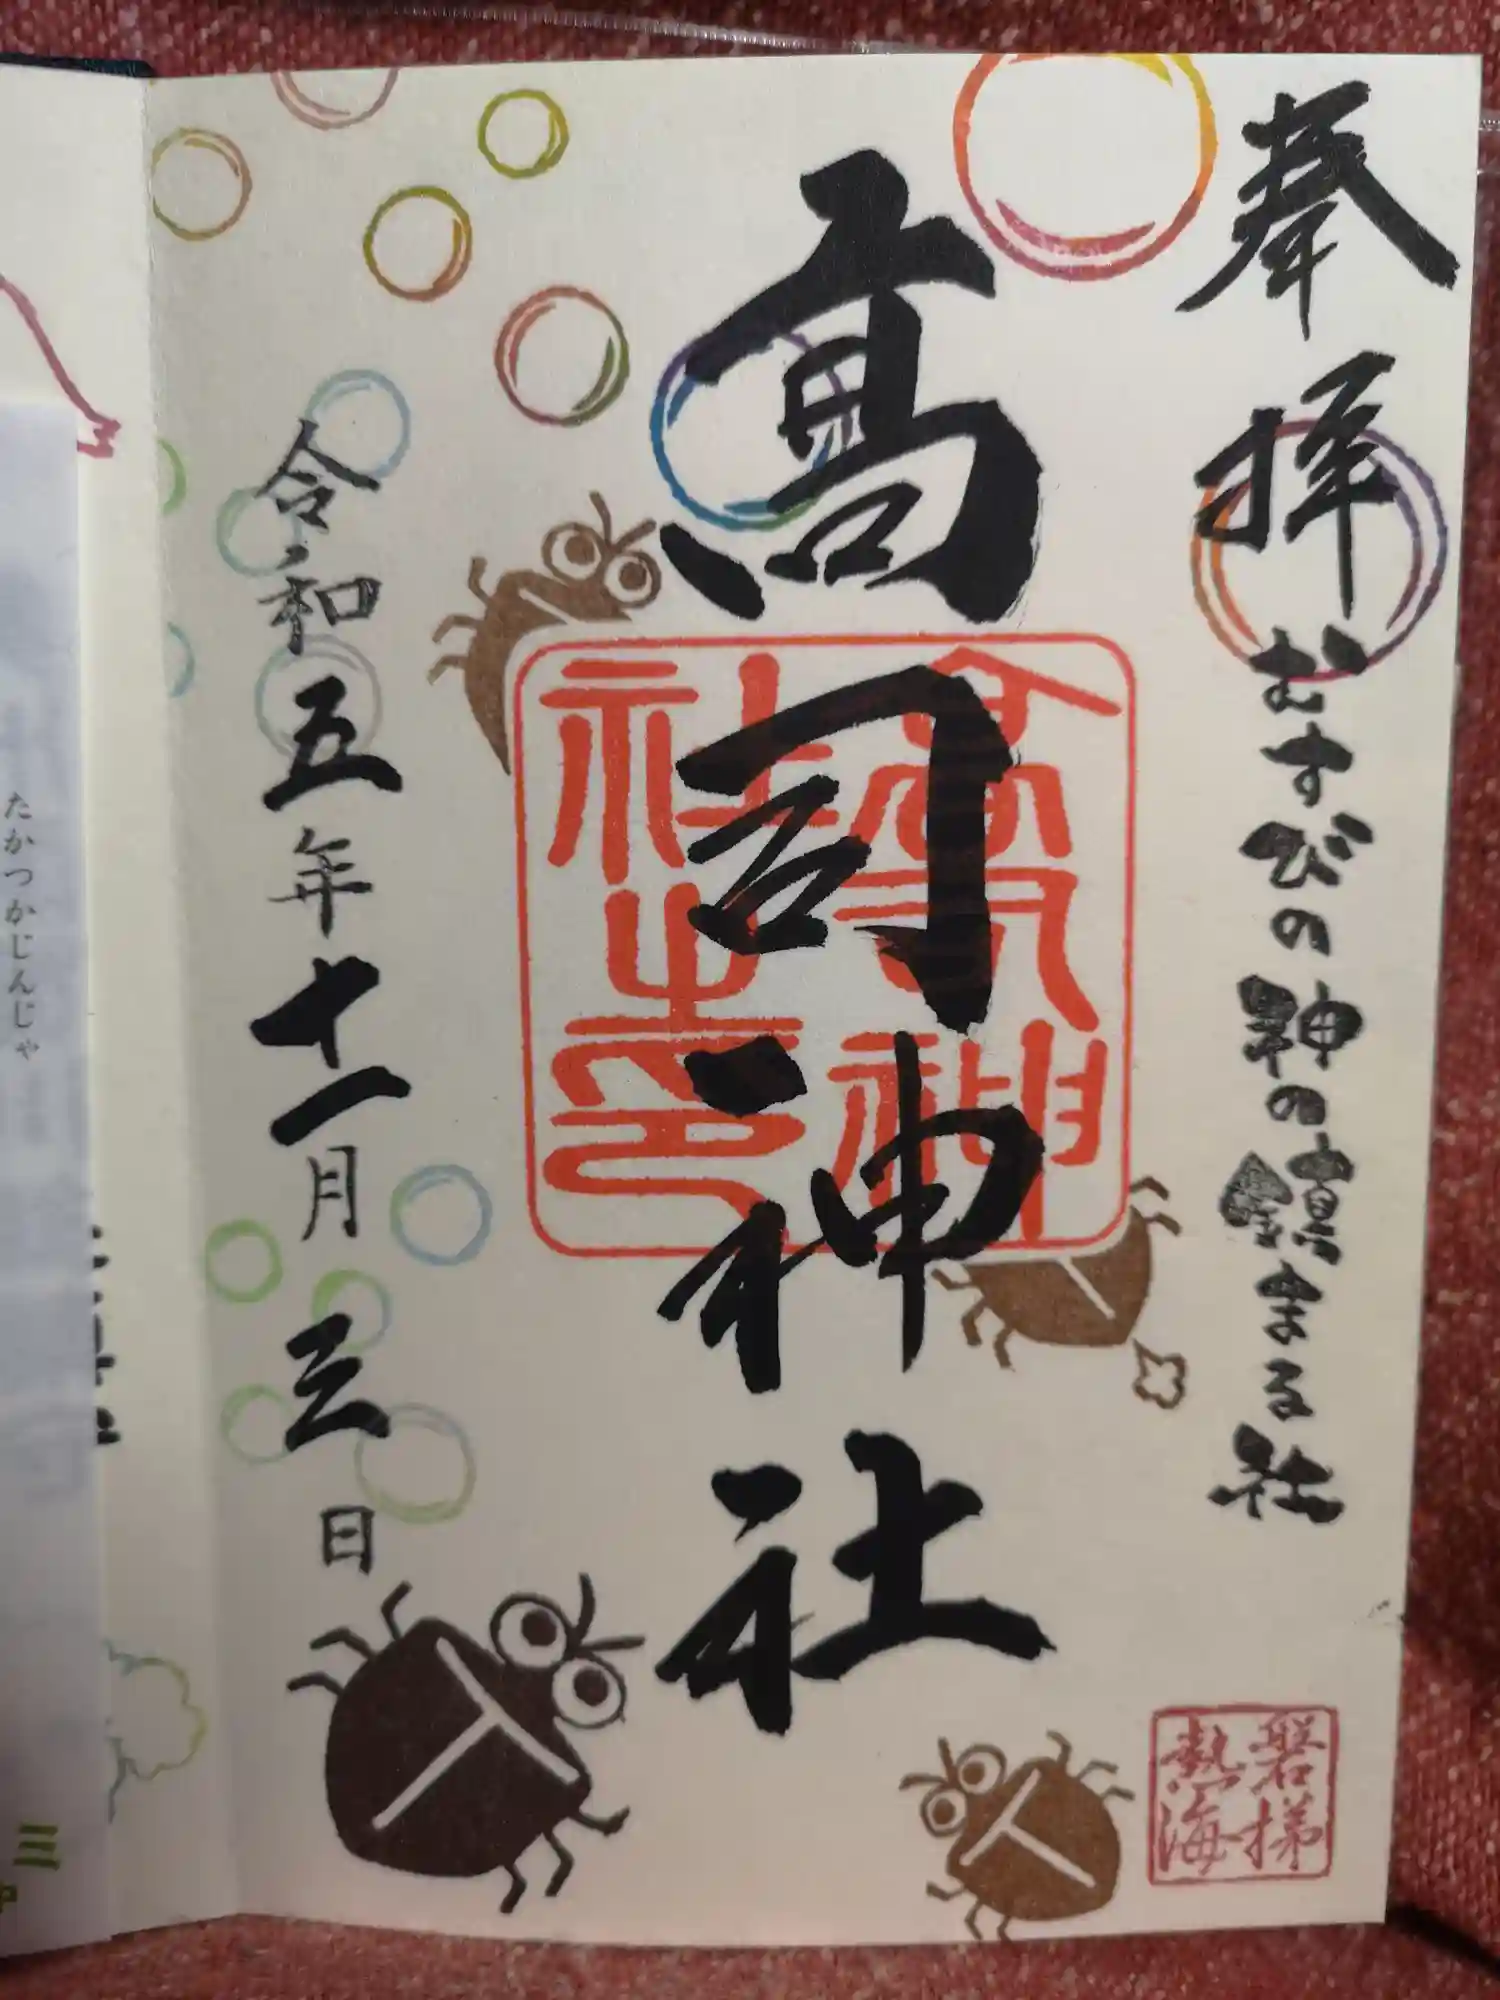 奉拝
むすびの神の鎮まる社
磐梯
熱海
高司神社
高司神
社之印
令和五年十一月三日
たかつかじんじゃ
三